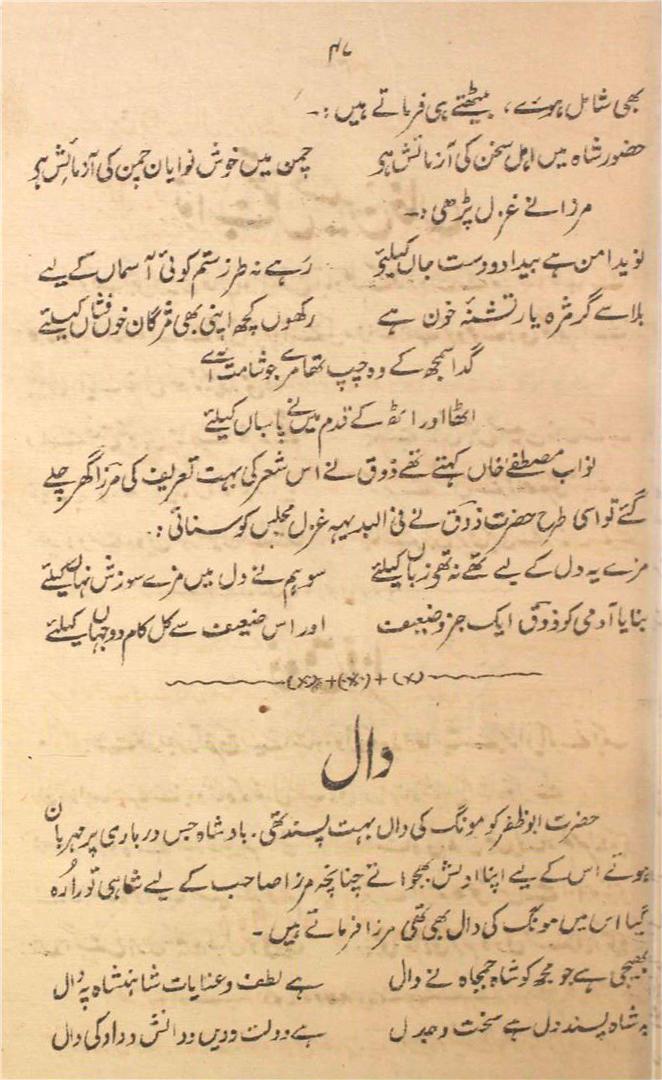 ۴۷
بھی شامل ہوئے، بیٹھتے ہی فرماتے ہیں :-
حضور شاہ میں اہل سخن کی آزمائش ہو چمن میں خوش نوایان چمن کی آزمائش ہو
مرزا نے غزل پڑھی :-
نوید امن ہے بیداد دوست جاں کیلئے رہے نہ طرز ستم کوئی آسماں کے لیے
بلا سے گر مژہ یار تشنۂ خون ہے رکھوں کچھ اپنی بھی مژگان خوں فشاں کیلئے
گدا سمجھ کے وہ چپ تھا مرے جو شامت آئے
اٹھا اور اٹھ کے قدم میں نے پاسباں کیلئے
نواب مصطفےٰ خاں کہتے تھے ذوق نے اس شعر کی بہت تعریف کی مرزا گھر چلے
گئے تو اسی طرح حضرت ذوق نے فی البدیہہ غزل مجلس کو سنائی :.
مزے یہ دل کے لیے تھے نہ تھے زباں کیلئے سو ہم نے دل میں مزے سوزش نہاں کیلئے
بنایا آدمی کو ذوق ایک جزو ضعیف اور اس ضعیف سے کل کام دو جہاں کیلئے
دال
حضرت ابو ظفر کو مونگ کی دال بہت پسند تھی. بادشاہ جس درباری پر مہربان
ہوتے اس کے لیے اپنا ادلش بھجواتے چنانچہ مرزا صاحب کے لیے شاہی تورا رہ
گیا اس میں مونگ کی دال بھی تھی مرزا فرماتے ہیں -
بھیجی ہے جو مجھ کو شاہ جمجاہ نے دال ہے لطف و عنایات شاہنشاہ پہ دال
یہ شاہ پسند دل ہے سخت و جدل ہے دولت و دیں و دانش و داد کی دال